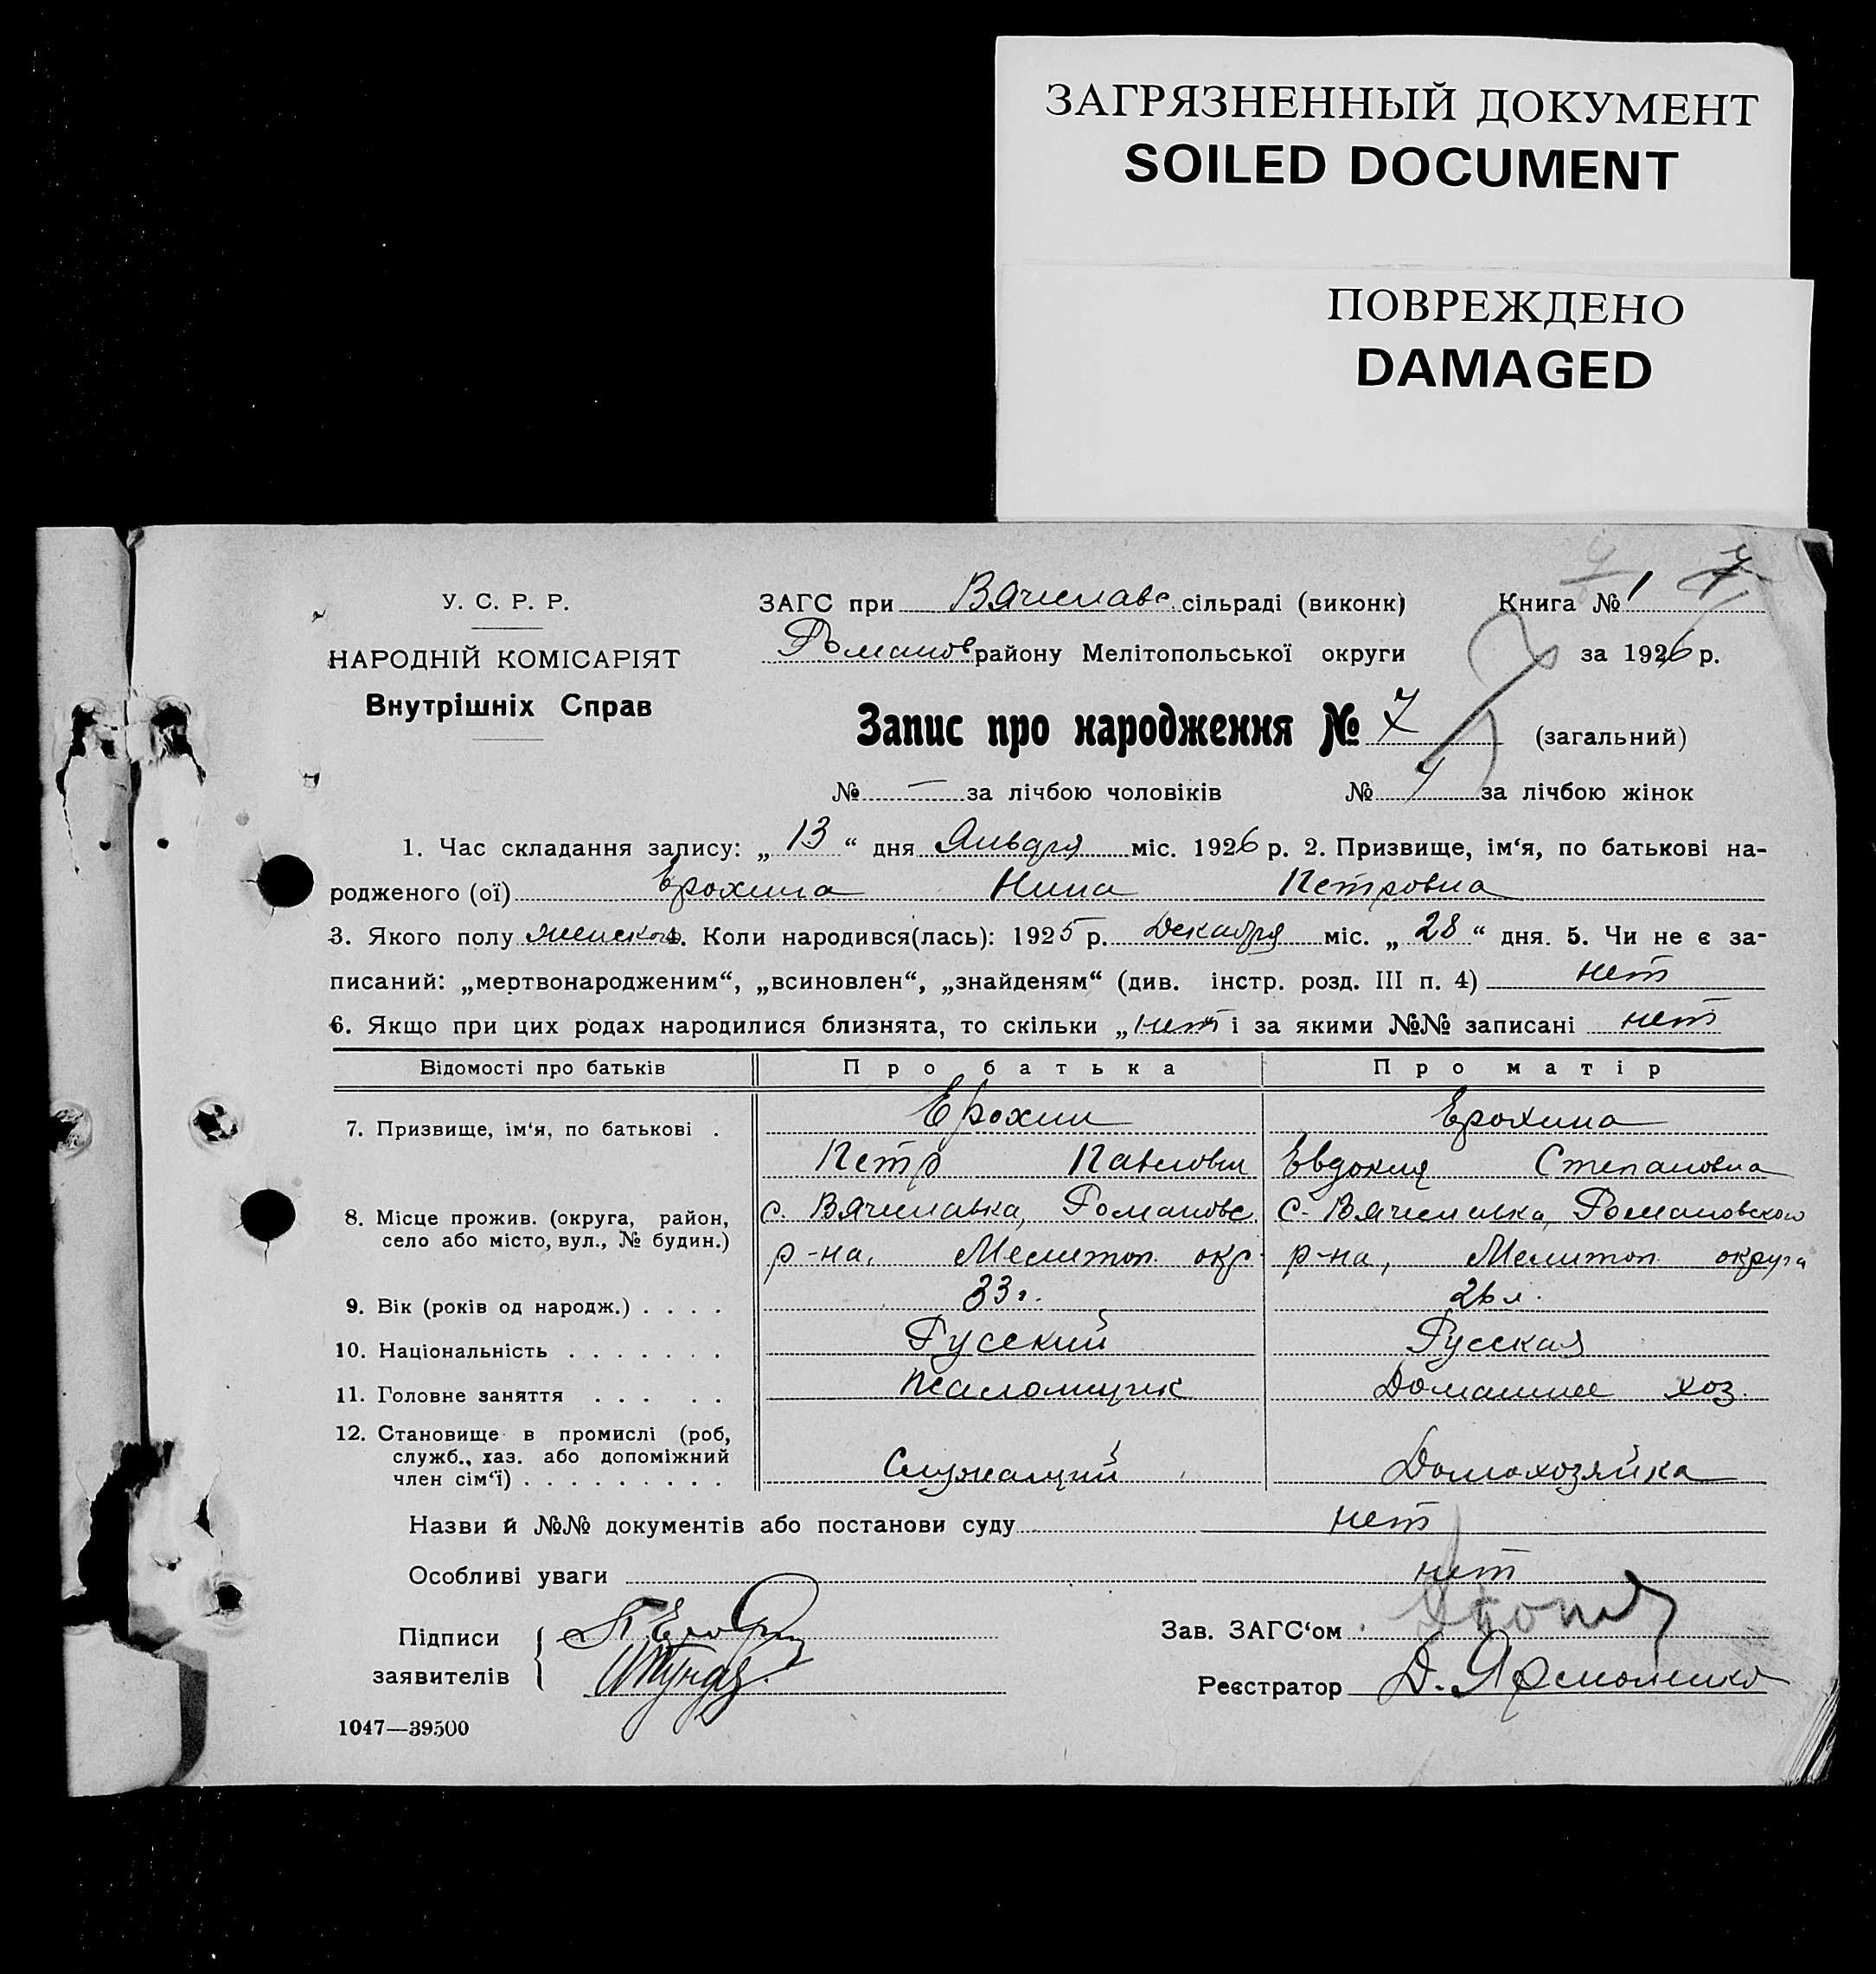 ЗАГРЯЗНЕННЫЙ ДОКУМЕНТ
SOILED DOCUMENT
ПОВРЕЖДЕНО
DAMAGED
У. С. Р. Р.
НАРОДНІЙ КОМІСАРІЯТ
Внутрішніх Справ
ЗАГС при Вячеславс. сільраді (виконк) Книга № 1
Романов району Мелітопольської округи за 1926 р.
Запис про народження № 7 (загальний)
№ — за лічбою чоловіків № за лічбою жінок
1. Час складання запису: „ 13 “ дня Января міс. 1926 р. 2. Призвище, ім‘я, по батькові на-
родженого (ої) Ерохина Нина Петровна
3. Якого полу женского 4. Коли народився(лась): 1925 р. Декабря міс. „ 28 “ дня. 5. Чи не є за-
писаний: „мертвонародженим“, „всиновлен“, „знайденям“ (див. інстр. розд. III п. 4) нет
6. Якщо при цих родах народилися близнята, то скільки „ нет “ і за якими №№ записані нет
Відомості про батьків Про батька Про матір
7. Призвище, ім‘я, по батькові . Ерохин Ерохина
Петр Павлович Евдокия Степановна
8. Місце прожив. (округа, район, село або місто, вул., № будин.) с. Вячеславка, Романовс. с. Вячеславка, Романовского
р-на, Мелитоп. окр. р-на, Мелитоп. округа
9. Вік (років од народж.) . . . . 33 г. 26 л.
10. Національність . . . . . . . Русский Русская
11. Головне заняття . . . . . Домашнее хоз.
12. Становище в промислі (роб,
служб., хаз. або допоміжний
член сім‘ї) . . . . . . . . . Служащий Домохозяйка
Назви й №№ документів або постанови суду нет
Особливі уваги нет
Підписи
заявителів
Зав. ЗАГС‘ом
Реєстратор Д. Ярмоленко
1047—39500